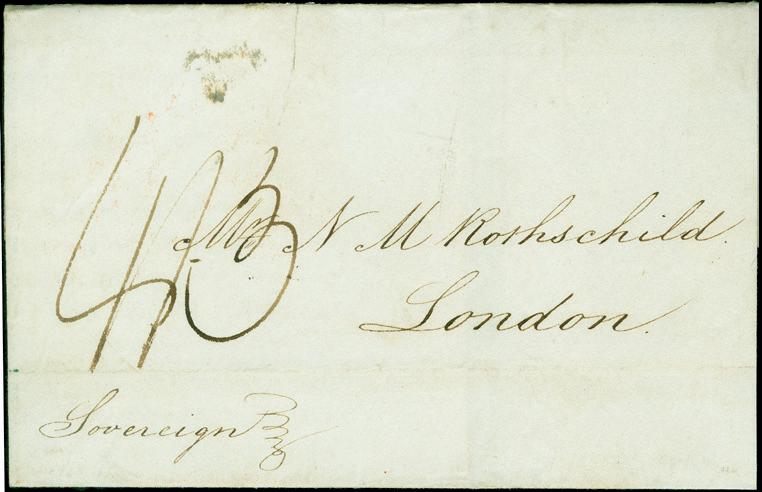 4/3
Mr N M Rothschild.
London.
Sovereign